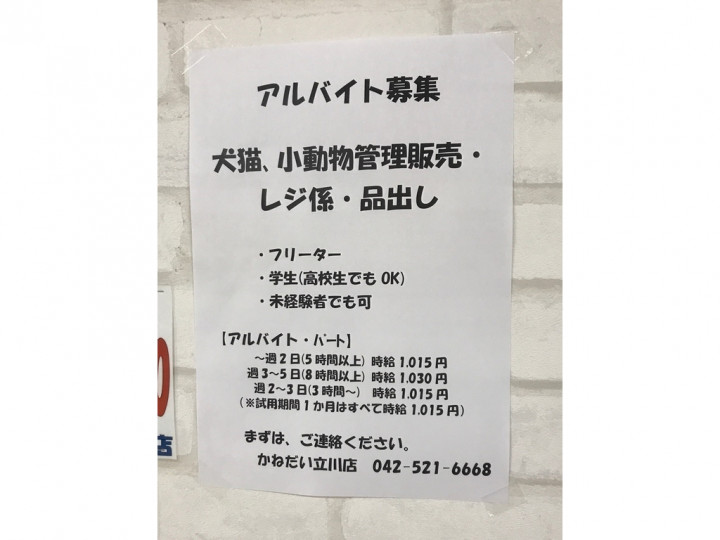 アルバイト募集
犬猫、小動物管理販売・
レジ係・品出し
・フリーター
・学生(高校生でも OK)
・未経験者でも可
【アルバイト・パート】
～週2日(5時間以上) 時給1.015円
週3～5日(8時間以上) 時給1.030円
週2～3日(3時間～) 時給1.015円
(※試用期間1か月はすべて時給1.015円)
まずは、ご連絡ください。
かねだい立川店 042-521-6668
店